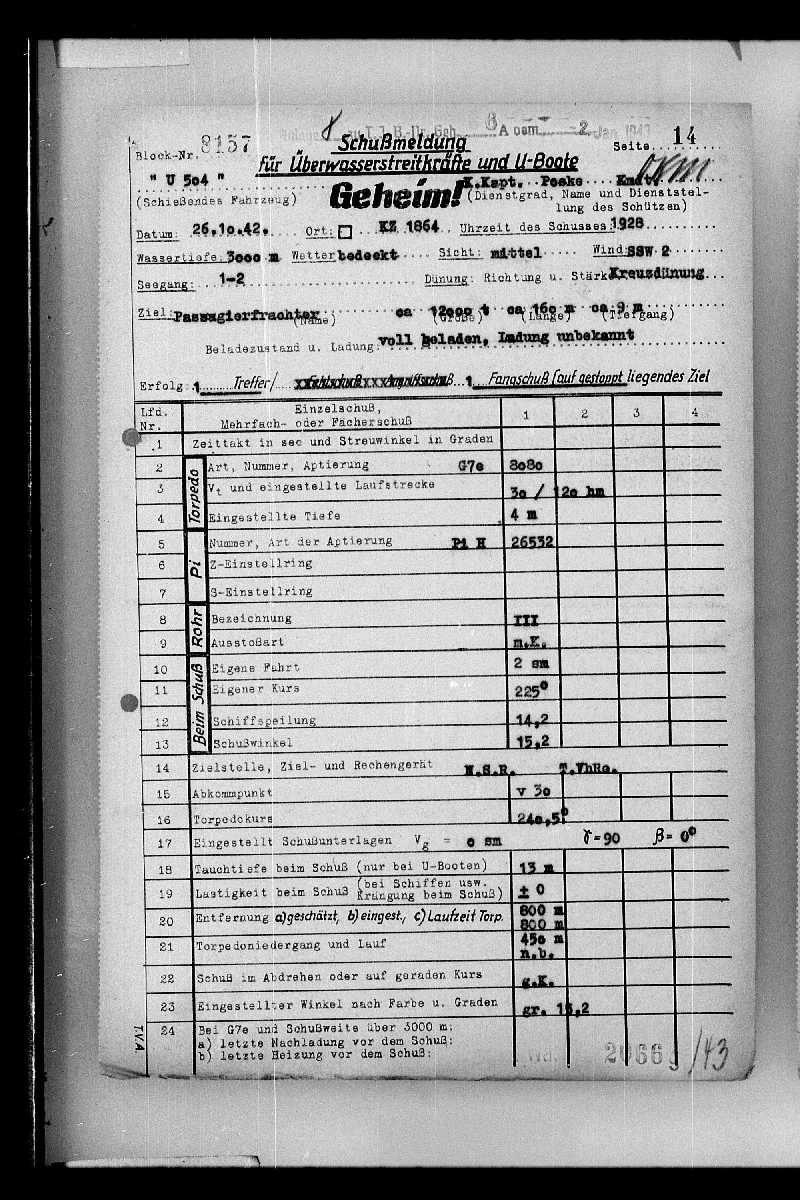 8157
A oem 2. Jan 1943
Block-Nr.
Schußmeldung
Seite 14
für Überwasserstreitkräfte und U-Boote
" U 504 "
Geheim!
K.Kapt. Poske Kmdt.
(Schießendes Fahrzeug)
(Dienstgrad, Name und Dienststel-
lung des Schützen)
Datum: 26.10.42. Ort: KZ 1864 Uhrzeit des Schusses: 1928
Wassertiefe: 3000 m Wetter bedeckt Sicht: mittel Wind: SSW 2
Seegang: 1-2 Dünung: Richtung u. Stärke Kreuzdünung
Ziel: Passagierfrachter ca 12000 t ca 160 m ca 9 m
(Name) (Größe) (Länge) (Tiefgang)
Beladezustand u. Ladung: voll beladen, Ladung unbekannt
Erfolg: 1 Treffer/ 1 Fangschuß (auf gestoppt liegendes Ziel
Lfd. Nr. Einzelschuß, Mehrfach- oder Fächerschuß 1 2 3 4
1 Zeittakt in sec und Streuwinkel in Graden
Torpedo
2 Art, Nummer, Aptierung G7e 8080
3 Vt und eingestellte Laufstrecke 30 / 120 hm
4 Eingestellte Tiefe 4 m
Pi
5 Nummer, Art der Aptierung Pi H 26532
6 Z-Einstellring
7 S-Einstellring
Rohr
8 Bezeichnung III
9 Ausstoßart m.K.
Beim Schuß
10 Eigene Fahrt 2 sm
11 Eigener Kurs 225°
12 Schiffspeilung 14,2
13 Schußwinkel 15,2
14 Zielstelle, Ziel- und Rechengerät N.S.R. T.VhRe.
15 Abkommpunkt v 30
16 Torpedokurs 240,5°
17 Eingestellt Schußunterlagen Vg = 0 sm γ=90 β= 0°
18 Tauchtiefe beim Schuß (nur bei U-Booten) 13 m
19 Lastigkeit beim Schuß (bei Schiffen usw. Krängung beim Schuß) ± 0
20 Entfernung a) geschätzt, b) eingest., c) Laufzeit Torp. 800 m
800 m
21 Torpedoniedergang und Lauf 450 m
n.b.
22 Schuß im Abdrehen oder auf geraden Kurs g.K.
23 Eingestellter Winkel nach Farbe u. Graden gr. 15,2
24 Bei G7e und Schußweite über 3000 m:
a) letzte Nachladung vor dem Schuß:
b) letzte Heizung vor dem Schuß:
TVA
/43